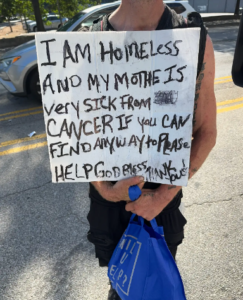 I AM HOMELESS
AND MY MOTHE IS
VERY SICK FROM
CANCER IF YOU CAN
FIND ANY WAY TO PLEASE
HELP GOD BLESS THANK YOU!
U
ELP?